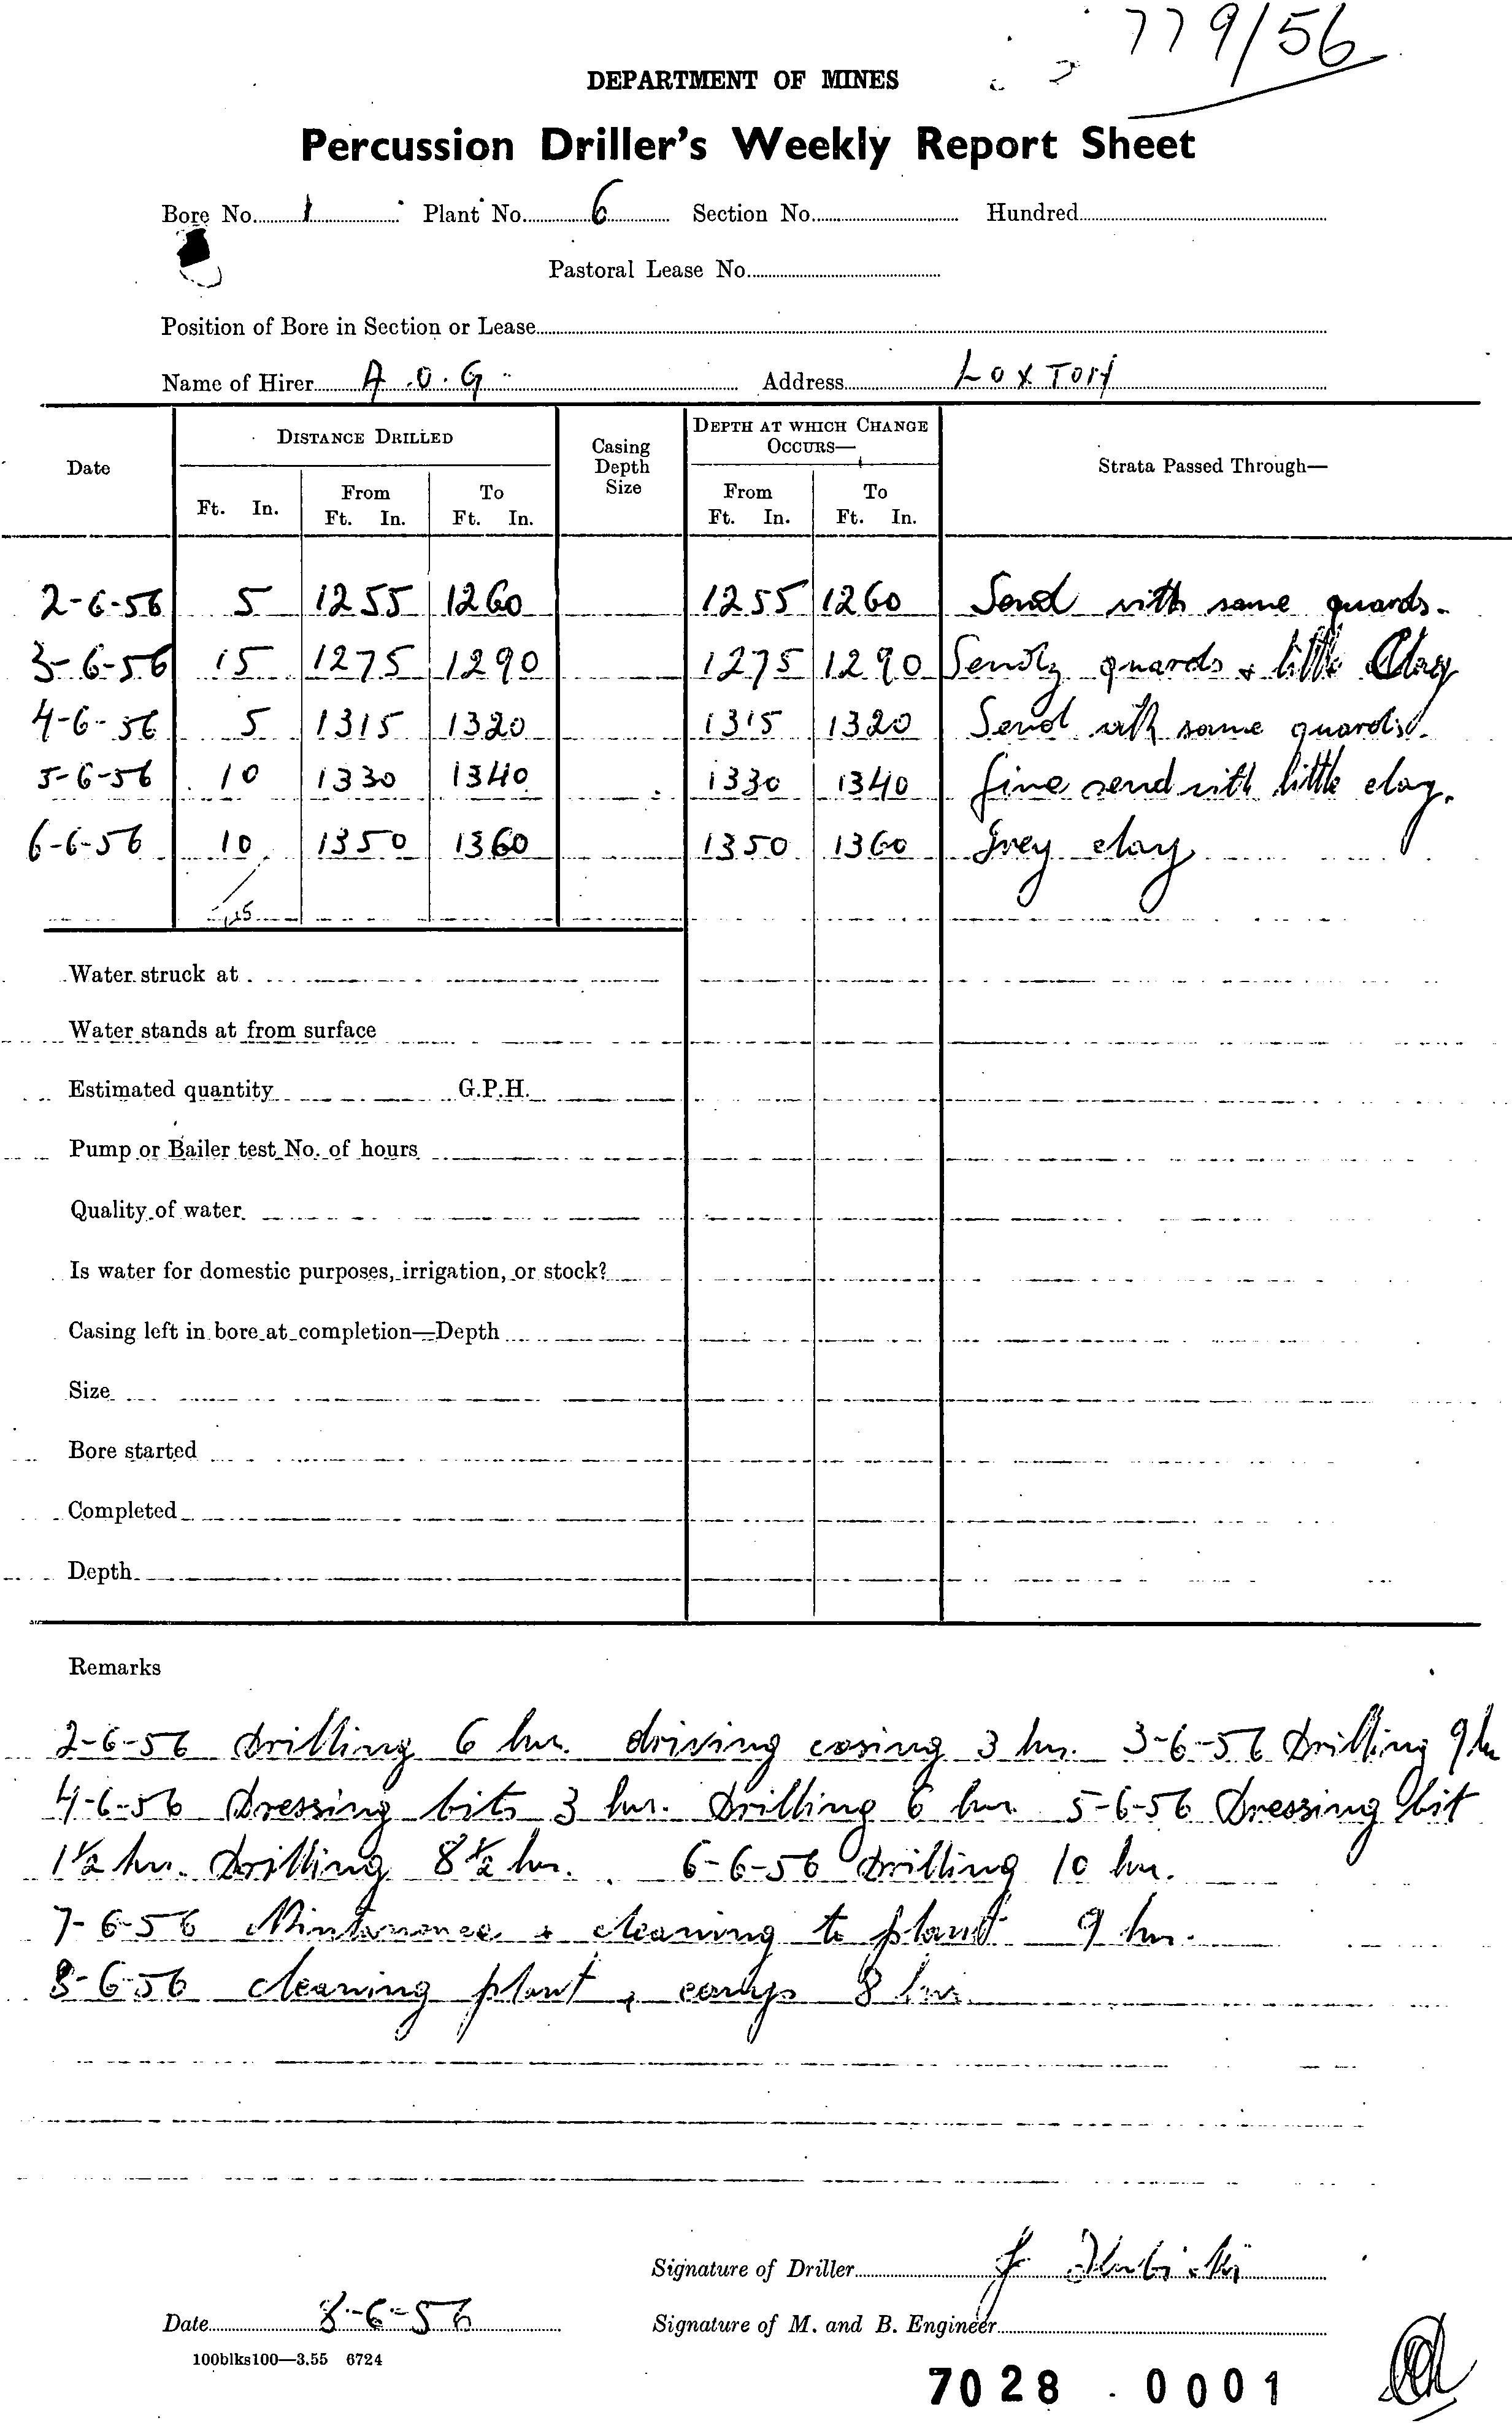 779/56
DEPARTMENT OF MINES
Percussion Driller's Weekly Report Sheet
Bore No. 1 Plant No. 6 Section No. Hundred
Pastoral Lease No.
Position of Bore in Section or Lease
Name of Hirer A.O.G. Address LOXTON
Date DISTANCE DRILLED Casing Depth Size DEPTH AT WHICH CHANGE OCCURS— Strata Passed Through—
Ft. In. From Ft. In. To Ft. In. From Ft. In. To Ft. In.
2-6-56 5 1255 1260 1255 1260 Send with some quards.
3-6-56 15 1275 1290 1275 1290 Sendy quards + little Clay
4-6-56 5 1315 1320 1315 1320 Send with some quards.
5-6-56 10 1330 1340 1330 1340 fine send with little clay.
6-6-56 10 1350 1360 1350 1360 Grey clay
Water struck at
Water stands at from surface
Estimated quantity G.P.H.
Pump or Bailer test No. of hours
Quality of water
Is water for domestic purposes, irrigation, or stock?
Casing left in bore at completion—Depth
Size
Bore started
Completed
Depth
Remarks
2-6-56 Drilling 6 hrs. driving casing 3 hrs. 3-6-56 Drilling 9 hr
4-6-56 Dressing bits 3 hrs. Drilling 6 hrs 5-6-56 Dressing bit
1½ hr. Drilling 8½ hr. 6-6-56 Drilling 10 hr.
7-6-56 Mintenance + cleaning to plant 9 hr.
8-6-56 cleaning plant, camp 8 hrs
Signature of Driller
Date 8-6-56 Signature of M. and B. Engineer
100blks100—3.55 6724
7028 . 0001